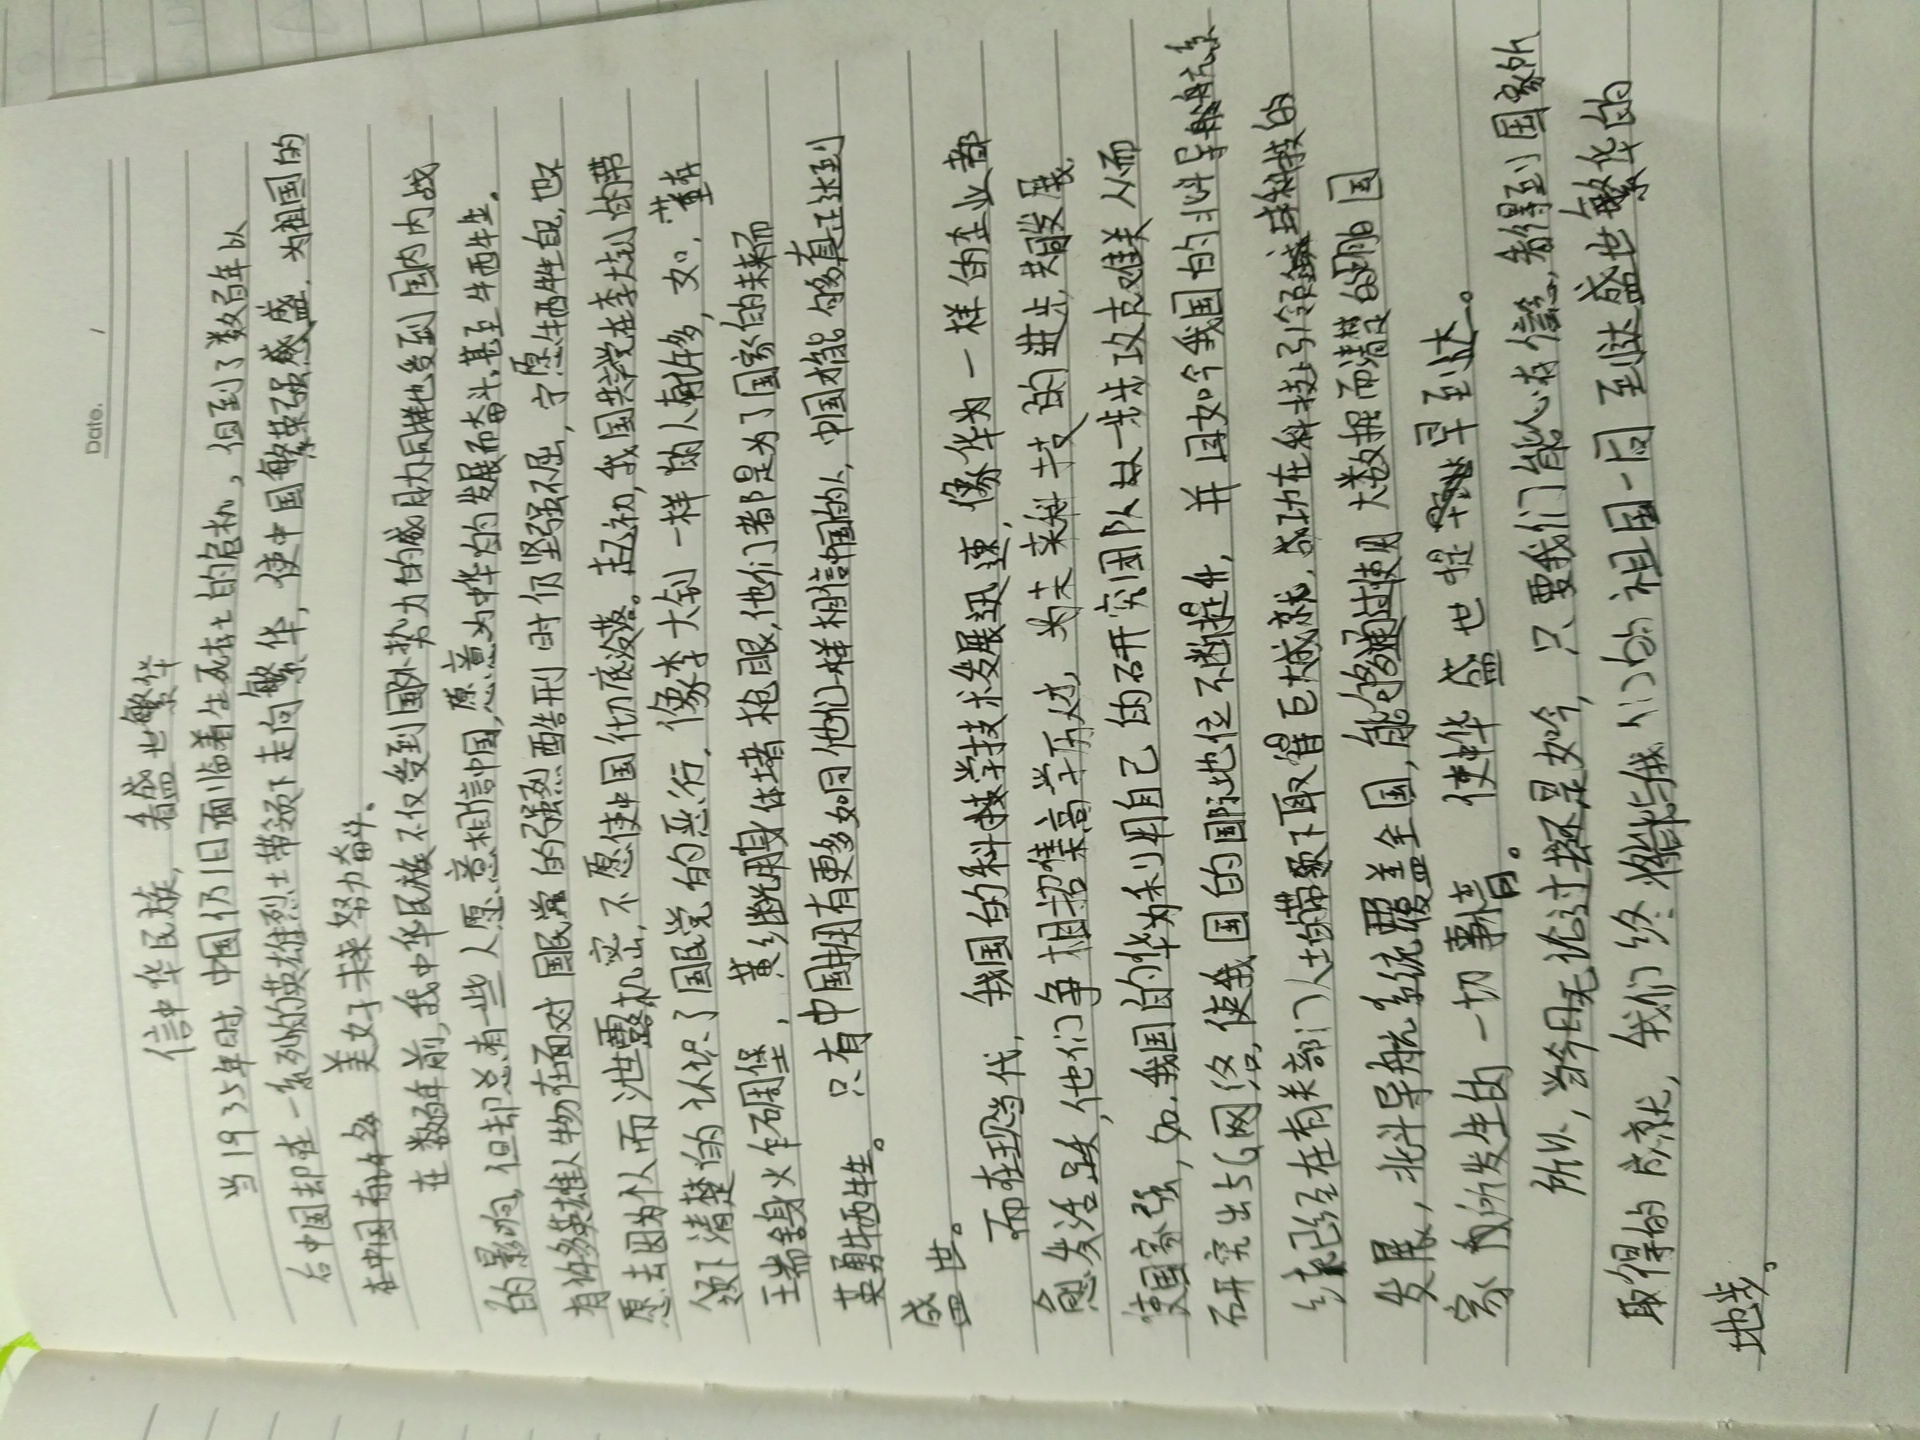 Date. /
信中华民族，看盛世繁华
当1935年时，中国仍旧面临着生死存亡的危机，但到了数百年以
后中国却在一系列的英雄烈士带领下走向繁华，使中国繁荣强盛，为祖国的
在中国有许多 美好未来努力奋斗。
在数百年前，我中华民族不仅受到国外势力的威胁力同样也受到国内内战
的影响，但却总有一些人愿意相信中国，愿意为中华的发展而奋斗，甚至牺牲。
有许多英雄人物在面对国民党的强烈酷刑时仍坚强不屈，宁愿牺牲自己，也不
愿去因为个人而泄露机密，不愿使中国彻底没落。起初，我国共产党在李大钊的带
领下清楚的认识了国民党的恶行，像李大钊一样的人有许多，如，董存
瑞舍身火炸碉堡，黄继光用身体堵枪眼，他们都是为了国家的未来而
英勇牺牲。只有中国拥有更多如同他们一样相信中国的人，中国才能够真正达到
盛世。
而在现当代，我国的科学技术发展迅速，像华为一样的企业都
愈发活跃，他们争相招集高学历人才，为未来科技的进步，共同发展，
使国家强，如，我国的华为利用自己的研究团队一步步攻克难关从而
研究出5G网络，使我国的国际地位不断提升，并且如今我国的北斗导航系
统已经在有关部门人士的带领下取得巨大成就，成功在科技上引领科技的
发展，北斗导航系统覆盖全国，能够通过使用大数据而清楚的明白国
家内所发生的一切事情。使中华盛世提早到达。
所以，当今日无论过去还是如今，只要我们能心有信念，看得到国家所
取得的成就，我们终将能与我们的祖国一同到达盛世繁华的
地步。